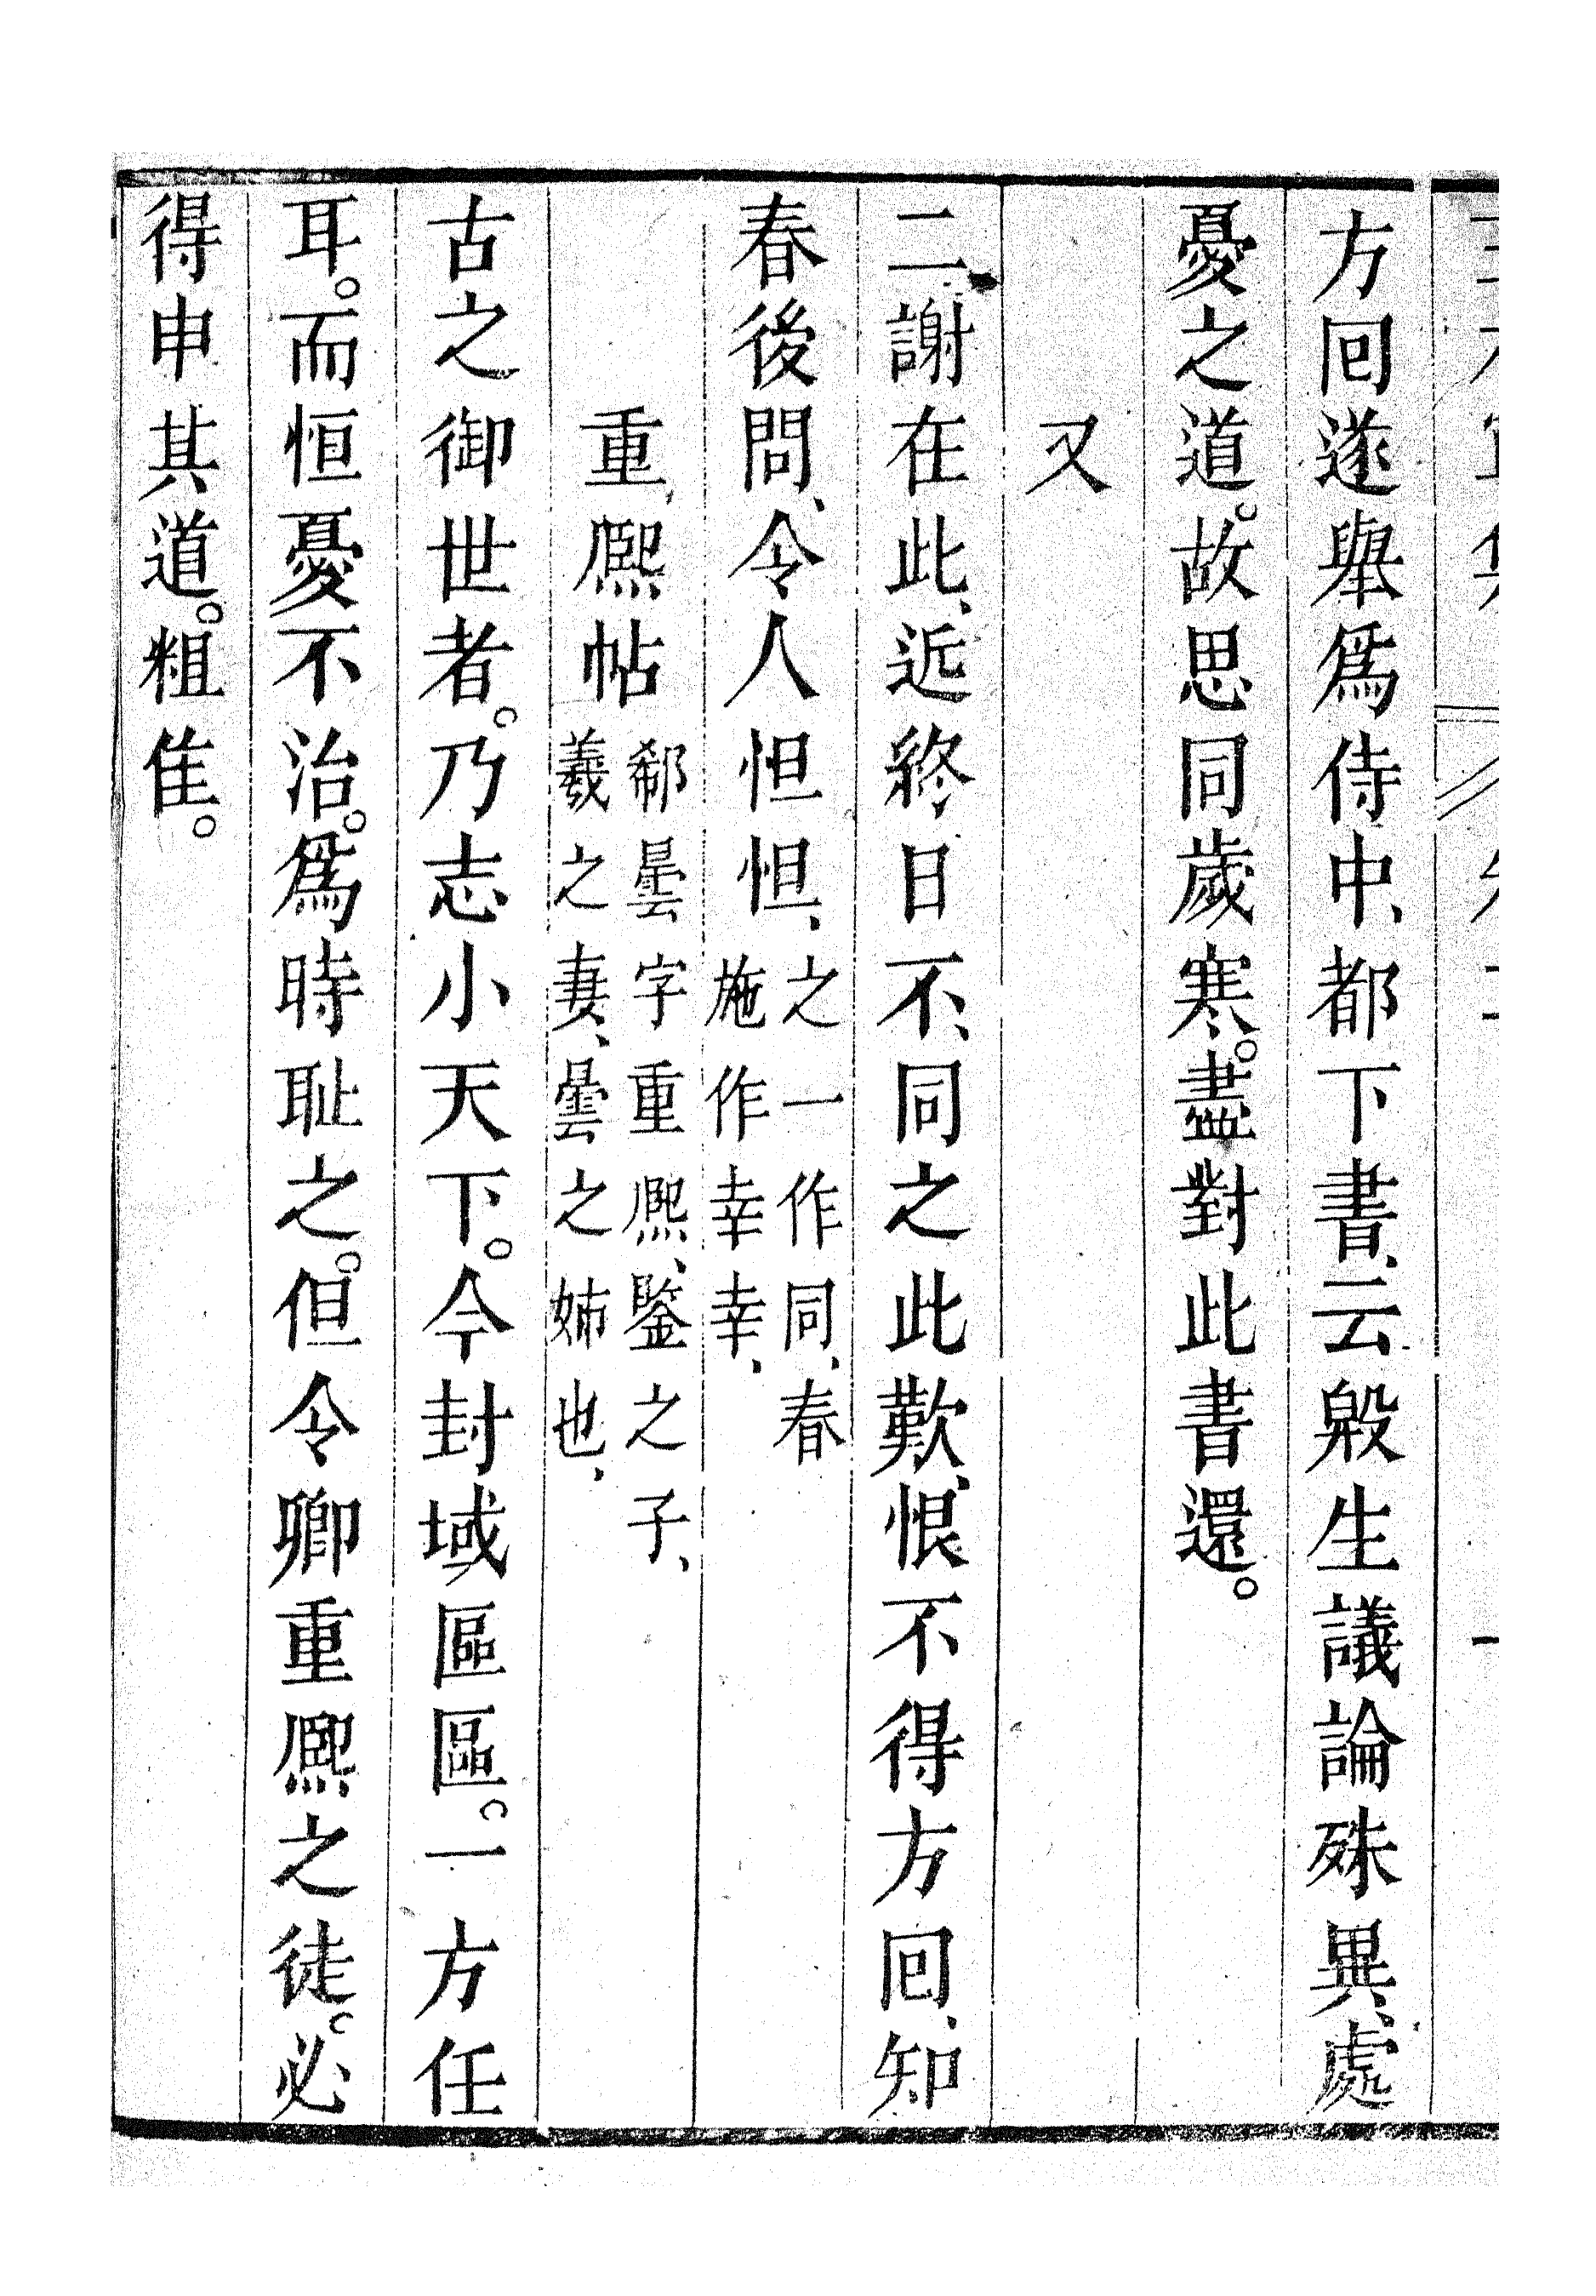 方回遂舉爲侍中、都下書、云殷生議論殊異、處
憂之道。故思同歲寒。盡對此書還。
又
二謝在此、近終日不、同之此歎、恨不得方回、知
春後問、令人怛怛、之一作同、春施作幸幸、
重熈帖郗曇字重熈、鑒之子、羲之妻、曇之姊也、
古之御世者。乃志小天下。今封域區區。一方任
耳。而恒憂不治。爲時耻之。但令卿重熈之徒。必
得申其道。粗佳。